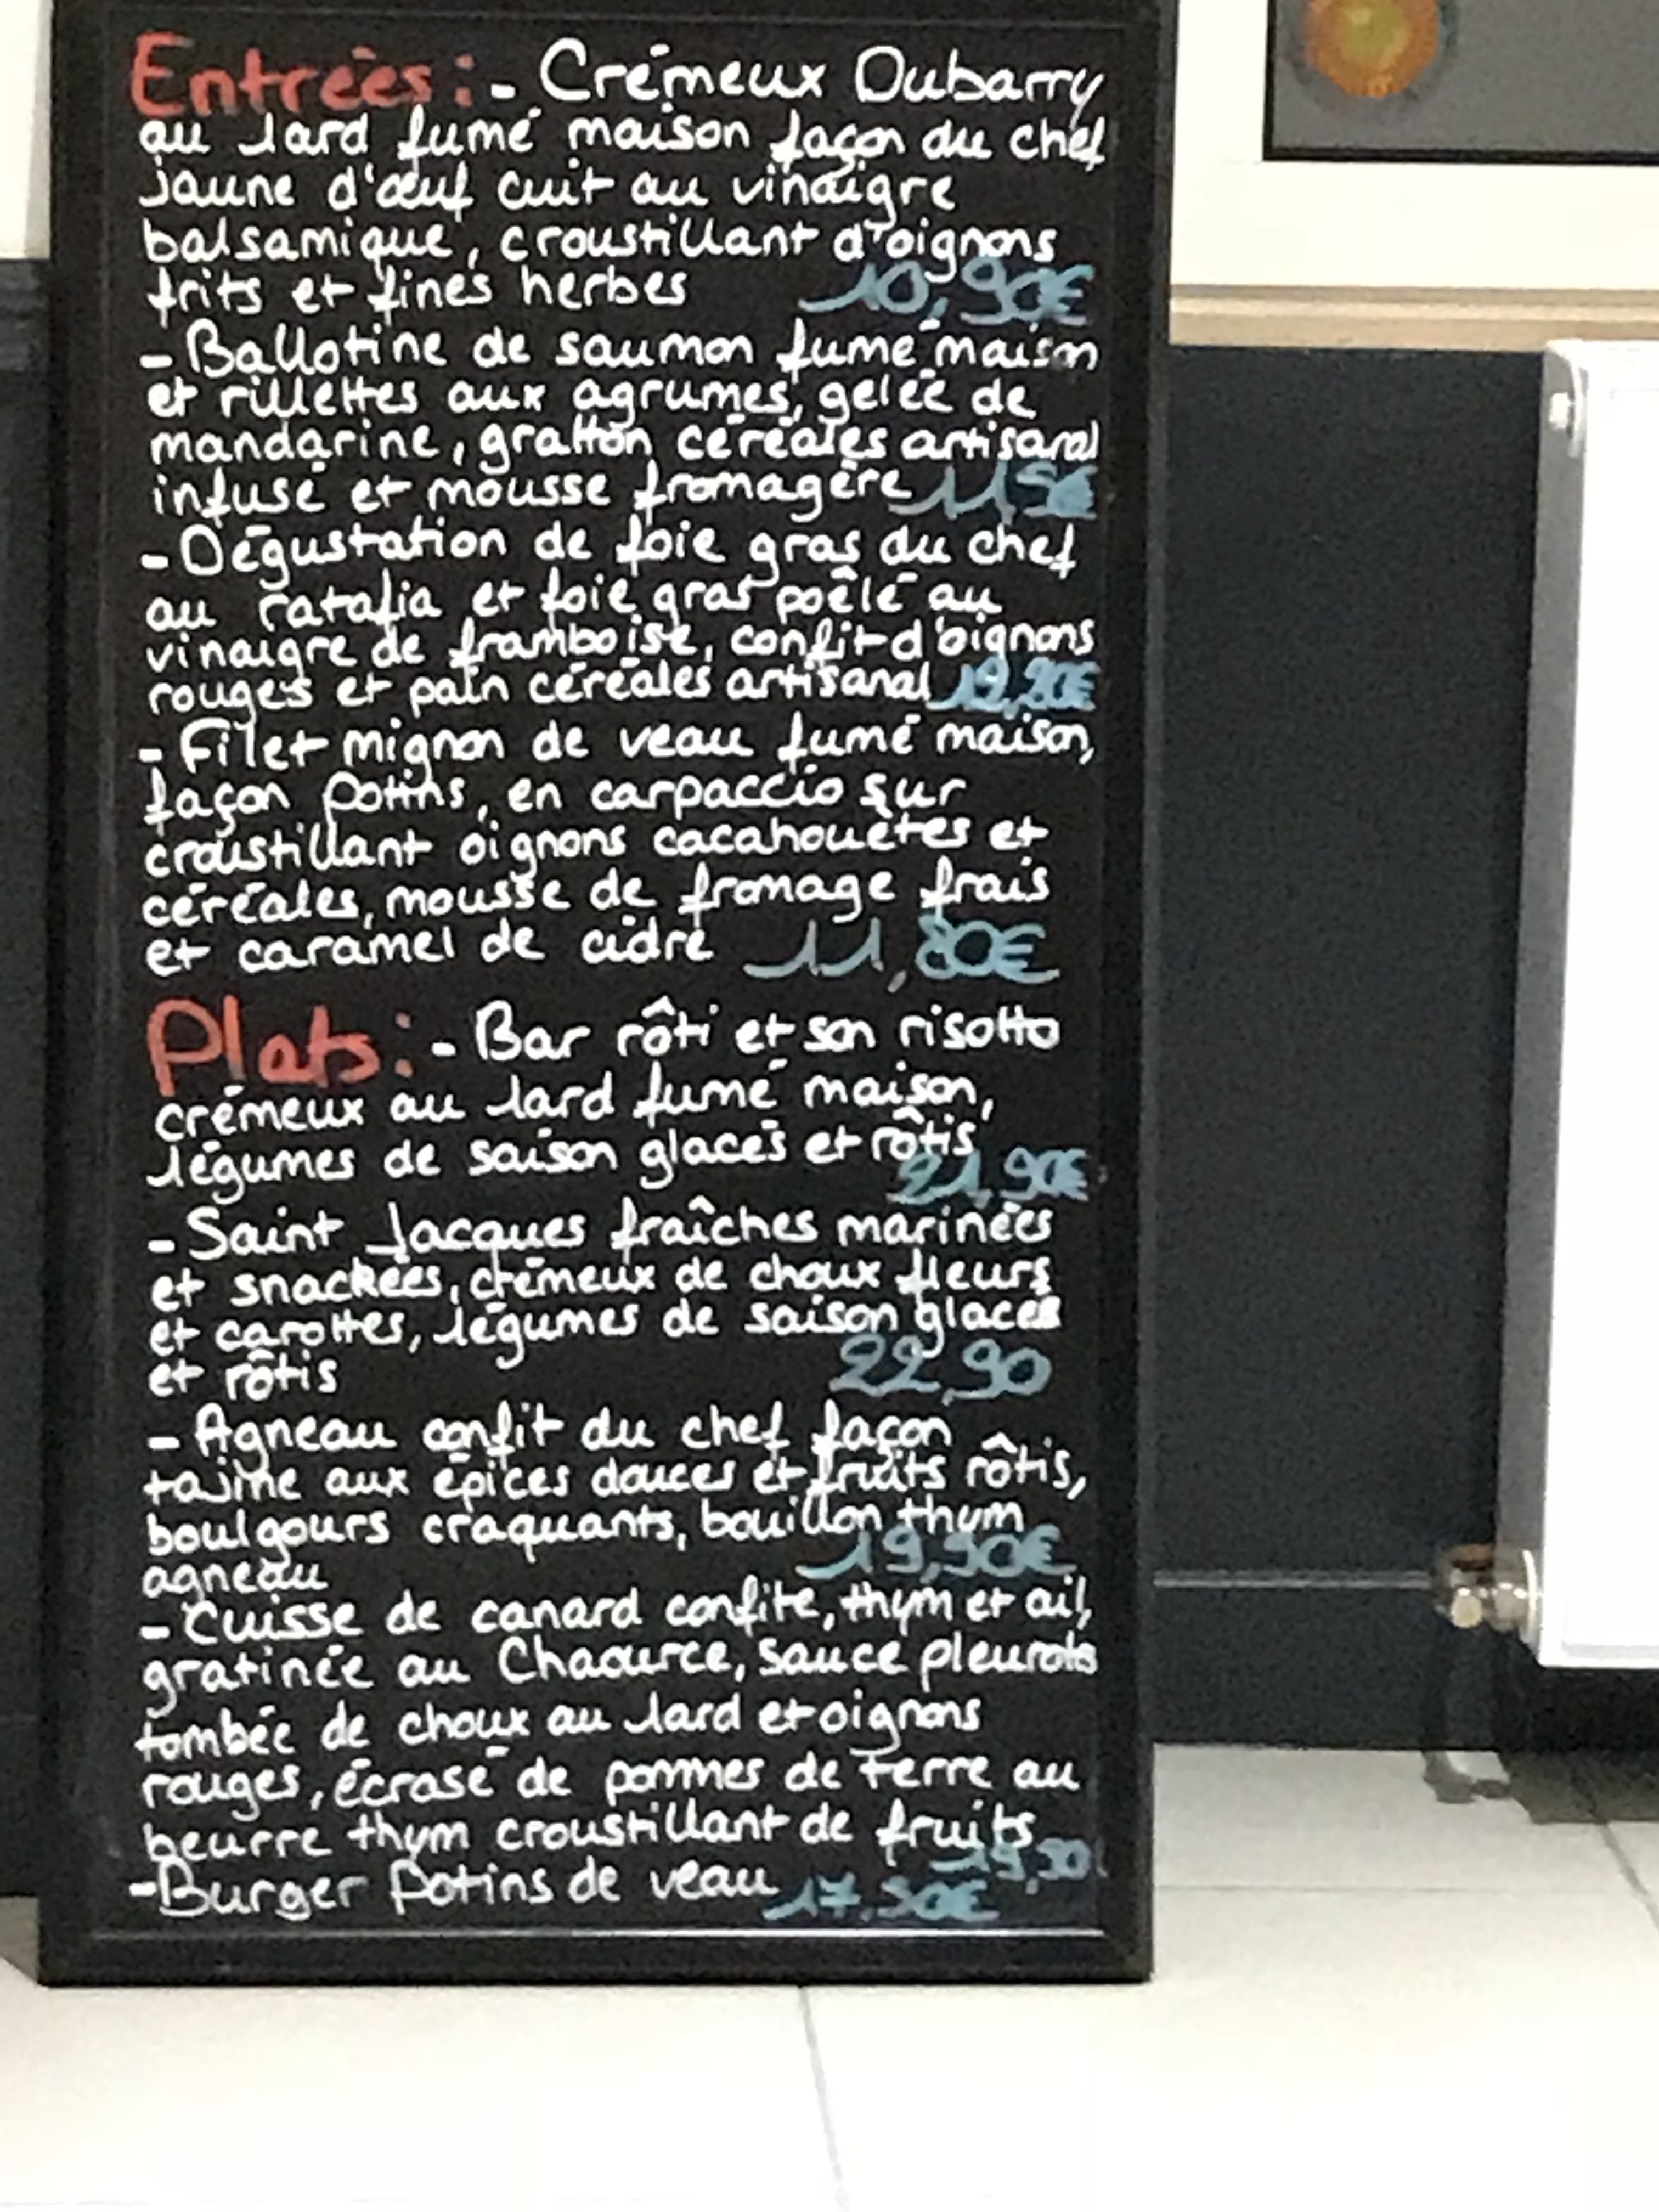 Entrées : - Crémeux Dubarry
au lard fumé maison façon du chef
jaune d'œuf cuit au vinaigre
balsamique, croustillant d'oignons
frits et fines herbes 10,90€
- Ballotine de saumon fumé maison
et rillettes aux agrumes, gelée de
mandarine, gratton céréales artisanal
infusé et mousse fromagère
- Dégustation de foie gras du chef
au ratafia et foie gras poêlé au
vinaigre de framboise, confit d'oignons
rouges et pain céréales artisanal
- Filet mignon de veau fumé maison,
façon Potins, en carpaccio sur
croustillant oignons cacahouètes et
céréales, mousse de fromage frais
et caramel de cidre 11,80€
Plats : - Bar rôti et son risotto
crémeux au lard fumé maison,
légumes de saison glacés et rôtis
21,90€
- Saint Jacques fraîches marinées
et snackées, crémeux de choux fleurs
et carottes, légumes de saison glacés
et rôtis 22,90
- Agneau confit du chef façon
tajine aux épices douces et fruits rôtis,
boulgours craquants, bouillon thym
agneau 19,90€
- Cuisse de canard confite, thym et ail,
gratinée au Chaource, sauce pleurots
tombée de choux au lard et oignons
rouges, écrasé de pommes de terre au
beurre thym croustillant de fruits
- Burger Potins de veau 17,90€